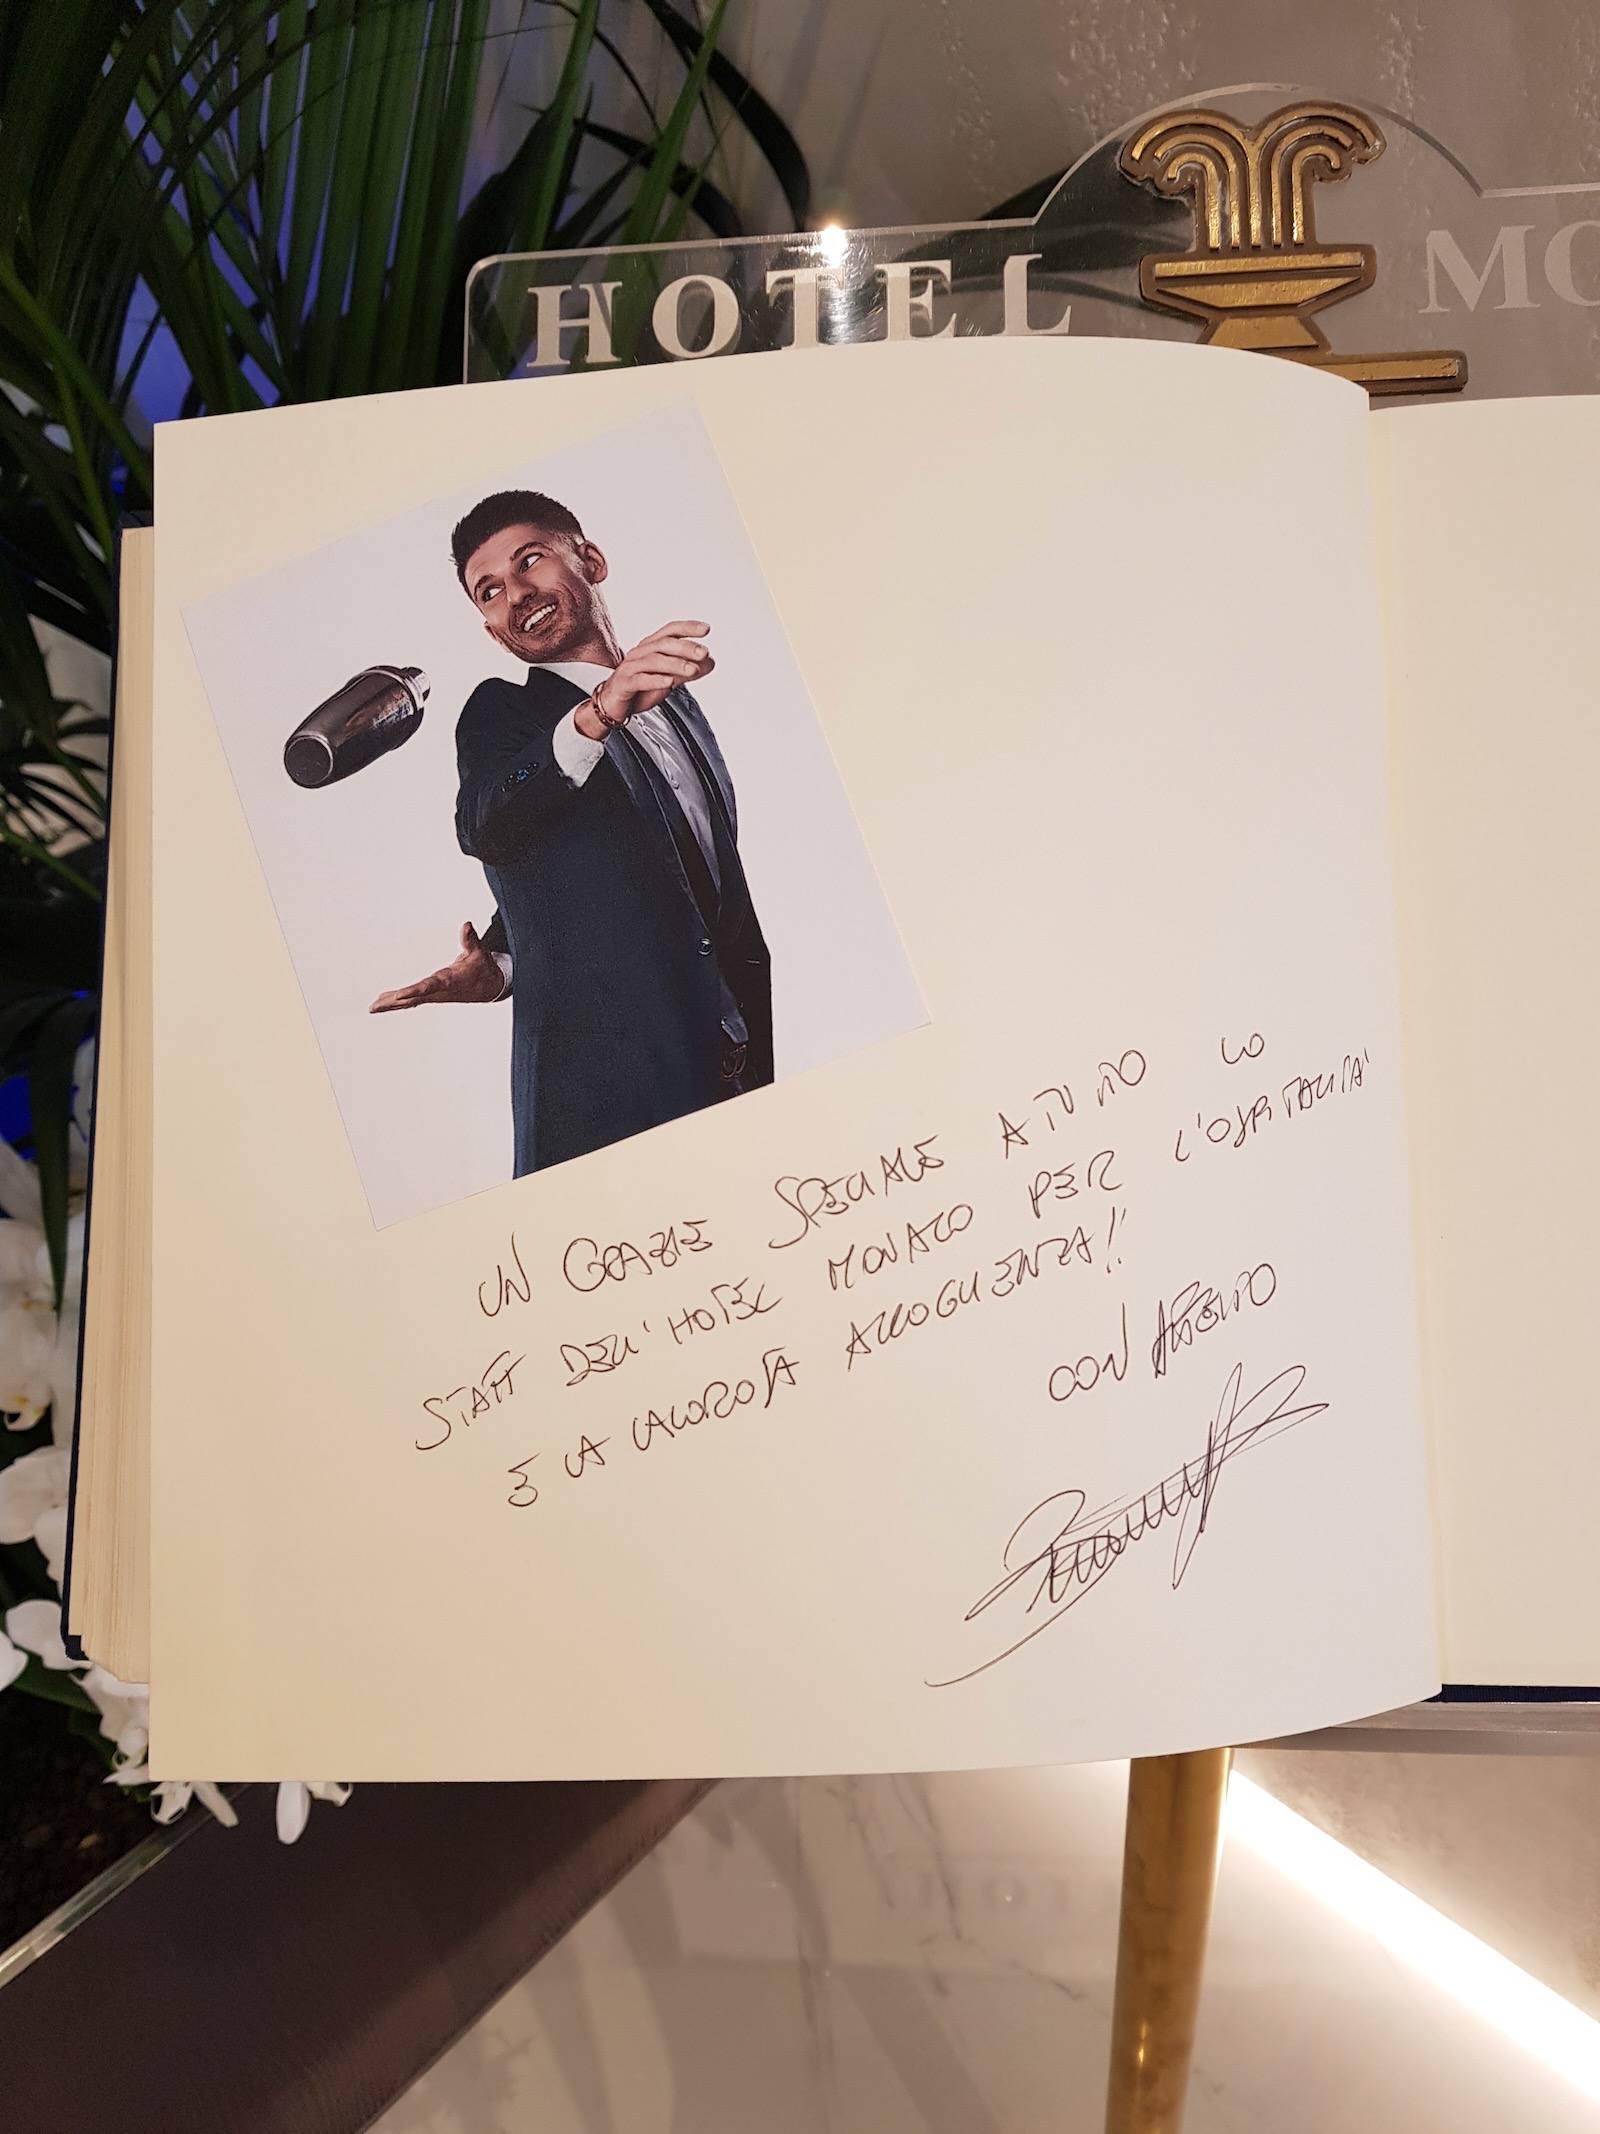 HOTEL MO
UN GRAZIE SPECIALE A TUTTO LO
STAFF DELL'HOTEL MONACO PER L'OSPITALITÀ
E LA CALOROSA ACCOGLIENZA!!
CON AFFETTO